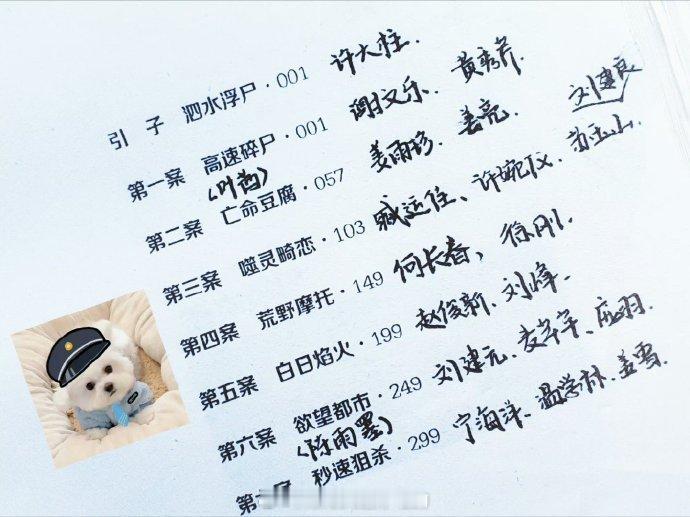 引 子 泗水浮尸·001 许大柱.
第一案 高速碎尸·001 谢文乐、黄秀芹.
(叶茜)
第二案 亡命豆腐·057 姜雨珍、姜亮. 刘建良
第三案 噬灵畸恋·103 臧运佳、许婉仪、苏玉山.
第四案 荒野摩托·149 何长春, 徐刚.
第五案 白日焰火·199 赵俊新、刘峰.
第六案 欲望都市·249 刘建元、麦芊芊、庞羽.
(陈雨墨)
秒速狙杀·299 宁海洋、温学林、孟雪.